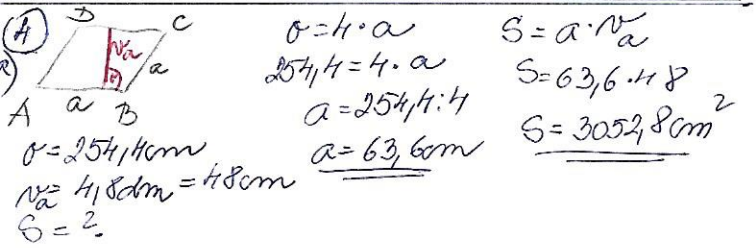 4
D C
v_a
a
A a B
o = 254,4cm
v_a = 4,8dm = 48cm
S = ?
o = 4 · a
254,4 = 4 · a
a = 254,4 : 4
a = 63,6cm
S = a · v_a
S = 63,6 · 48
S = 3052,8cm²